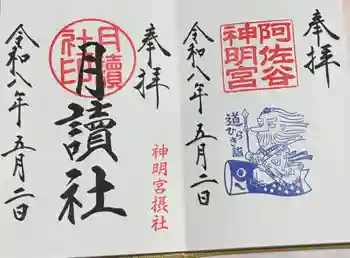 奉拝
阿佐谷
神明宮
道ひらき詣
令和八年五月二日
奉拝
月讀
社印
月讀社
神明宮摂社
令和八年五月二日